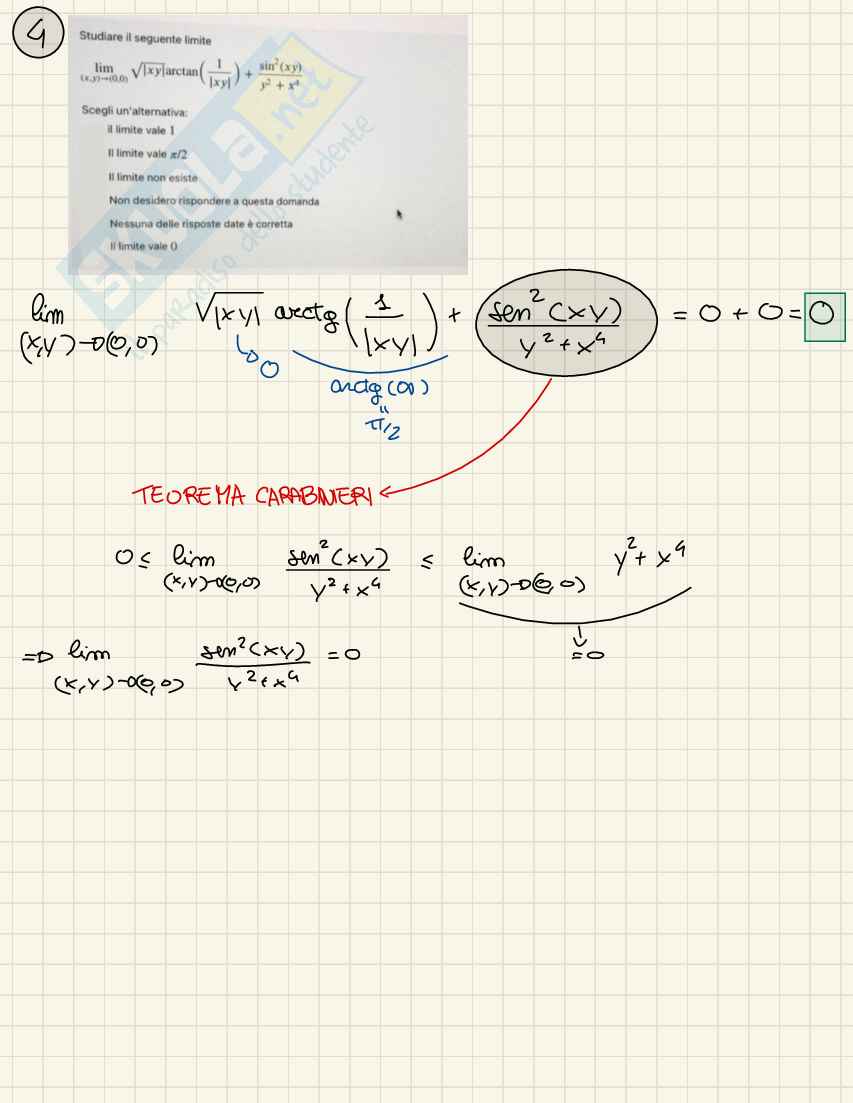 4
Studiare il seguente limite
lim (x,y)→(0,0) √|xy| arctan(1/|xy|) + sin²(xy)/(y² + x⁴)
Scegli un'alternativa:
il limite vale 1
Il limite vale π/2
Il limite non esiste
Non desidero rispondere a questa domanda
Nessuna delle risposte date è corretta
Il limite vale 0
SKUOLA.net
il paradiso dello studente
lim (x,y)→(0,0) √|xy| arctg(1/|xy|) + sen²(xy)/(y²+x⁴) = 0 + 0 = 0
↳ 0
arctg(∞)
=
π/2
TEOREMA CARABINIERI
0 ≤ lim (x,y)→(0,0) sen²(xy)/(y²+x⁴) ≤ lim (x,y)→(0,0) y²+x⁴
⇒ lim (x,y)→(0,0) sen²(xy)/(y²+x⁴) = 0
↓
=0